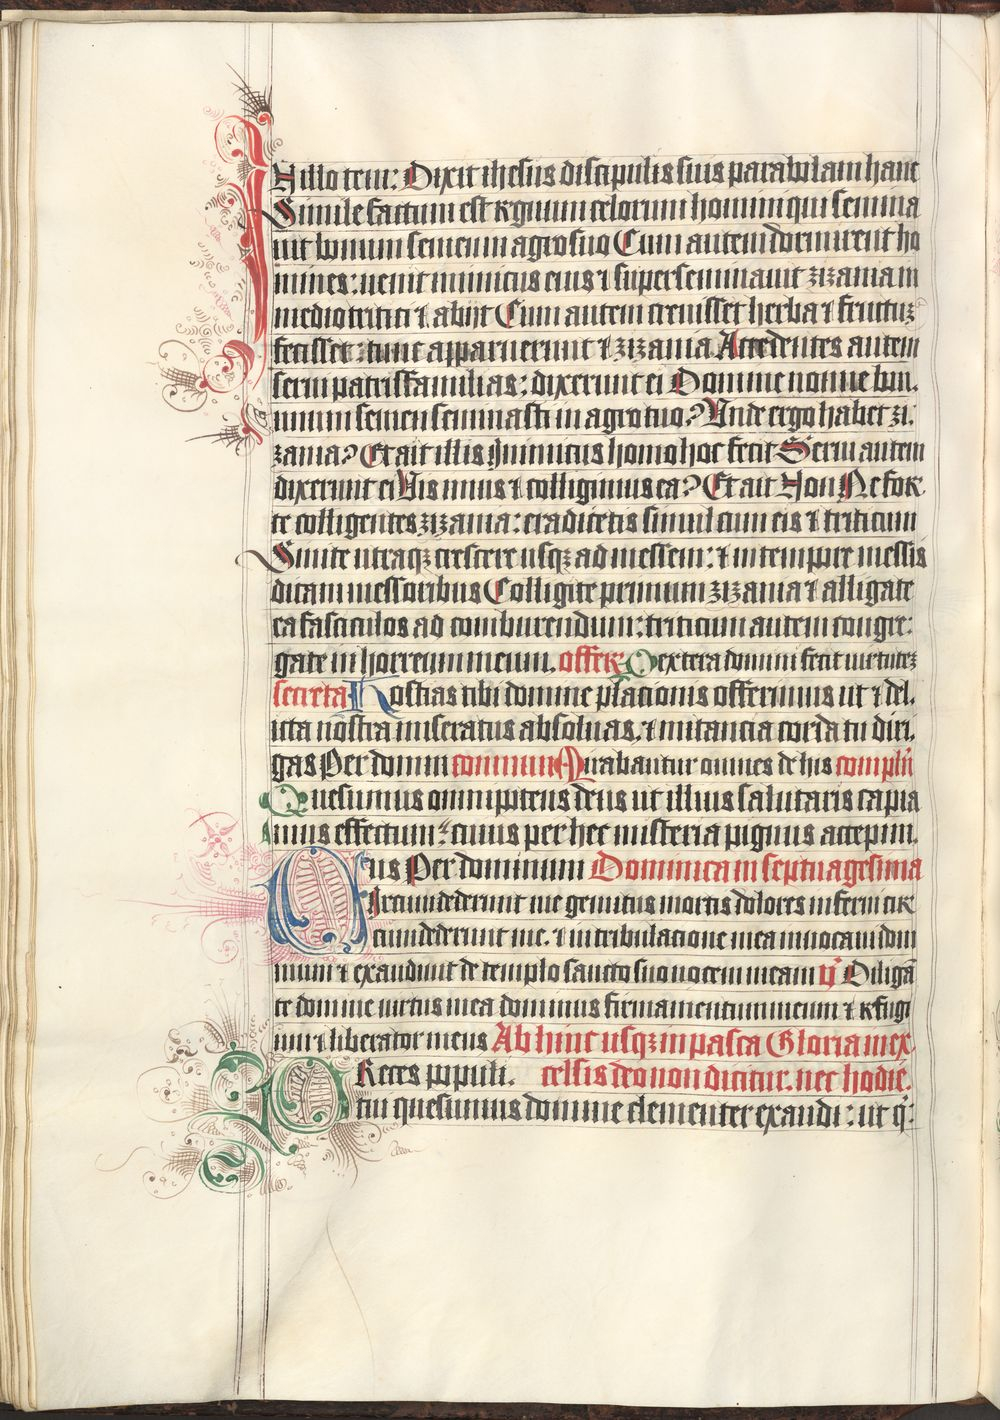 IN illo tem: Dixit ihesus discipulis suis parabolam hanc
Simile factum est regnum celorum homini qui semina
uit bonum semen in agro suo Cum autem dormirent ho
mines: uenit inimicus eius ⁊ superseminauit zizania in
medio tritici ⁊ abijt Cum autem creuisset herba ⁊ fructuz
fecisset: tunc apparuerunt ⁊ zizania Accedentes autem
serui patrisfamilias: dixerunt ei Domine nonne bon.
num semen seminasti in agro tuo? Unde ergo habet zi.
zania? Et ait illis Inimicus homo hoc fecit Serui autem
dixerunt ei Uis imus ⁊ colligimus ea? Et ait Non Ne for
te colligentes zizania: eradicetis simul cum eis ⁊ triticum
Sinite utraqz crescere usqz ad messem: ⁊ in tempore messis
dicam messoribus Colligite primum zizania ⁊ alligate
ea fasciculos ad comburendum: triticum autem congre:
gate in horreum meum. offer Dextera domini fecit uirtutez
secreta Hostias tibi domine placionis offerimus ut ⁊ del.
icta nostra miseratus absoluas. ⁊ nutancia corda tu diri.
gas Per domin commun Mirabantur omnes de his complñ
Quesumus omnipotens deus ut illius salutaris capia
mus effectum: cuius per hec misteria pignus accepim.
us Per dominum Dominica in septuagesima
Circumdederunt me gemitus mortis dolores inferni cir
cumdederunt me. ⁊ in tribulacione mea inuocaui dom
inum ⁊ exaudiuit de templo sancto suo uocem meam ỹ Diligã
te domine uirtus mea dominus firmamentum meum ⁊ refugi
um ⁊ liberator meus Ab hinc usqz in pasca Gloria in ex
Preces populi. celsis deo non dicitur. nec hodie.
tui quesumus domine clementer exaudi: ut q: